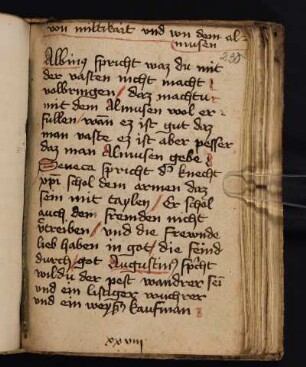 von miltikait vnd von dem al-
musen
235
Albinus spricht waz du mit
der vasten nicht macht
volbringen / daz machtu
mit dem Almusen wol er-
fullen / wann ez ist gut daz
man vaste ez ist aber pesser
daz man Almusen gebe
Seneca spricht der knecht
xpi schol dem armen daz
sein mit taylen / Er schol
auch dem fremden nicht
vertreiben / vnd die frewnde
lieb haben in got / die feind
durch got Augustinus spricht
wildu der pest wandrer sein
vnd ein listiger wuchrer
vnd ein kaufman
xxviii